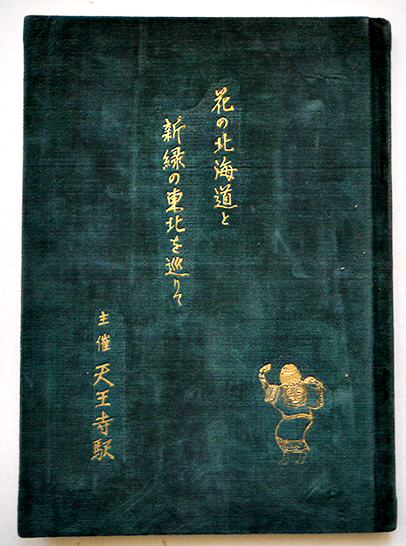 花の北海道と
新緑の東北を巡りて
主催 天王寺駅